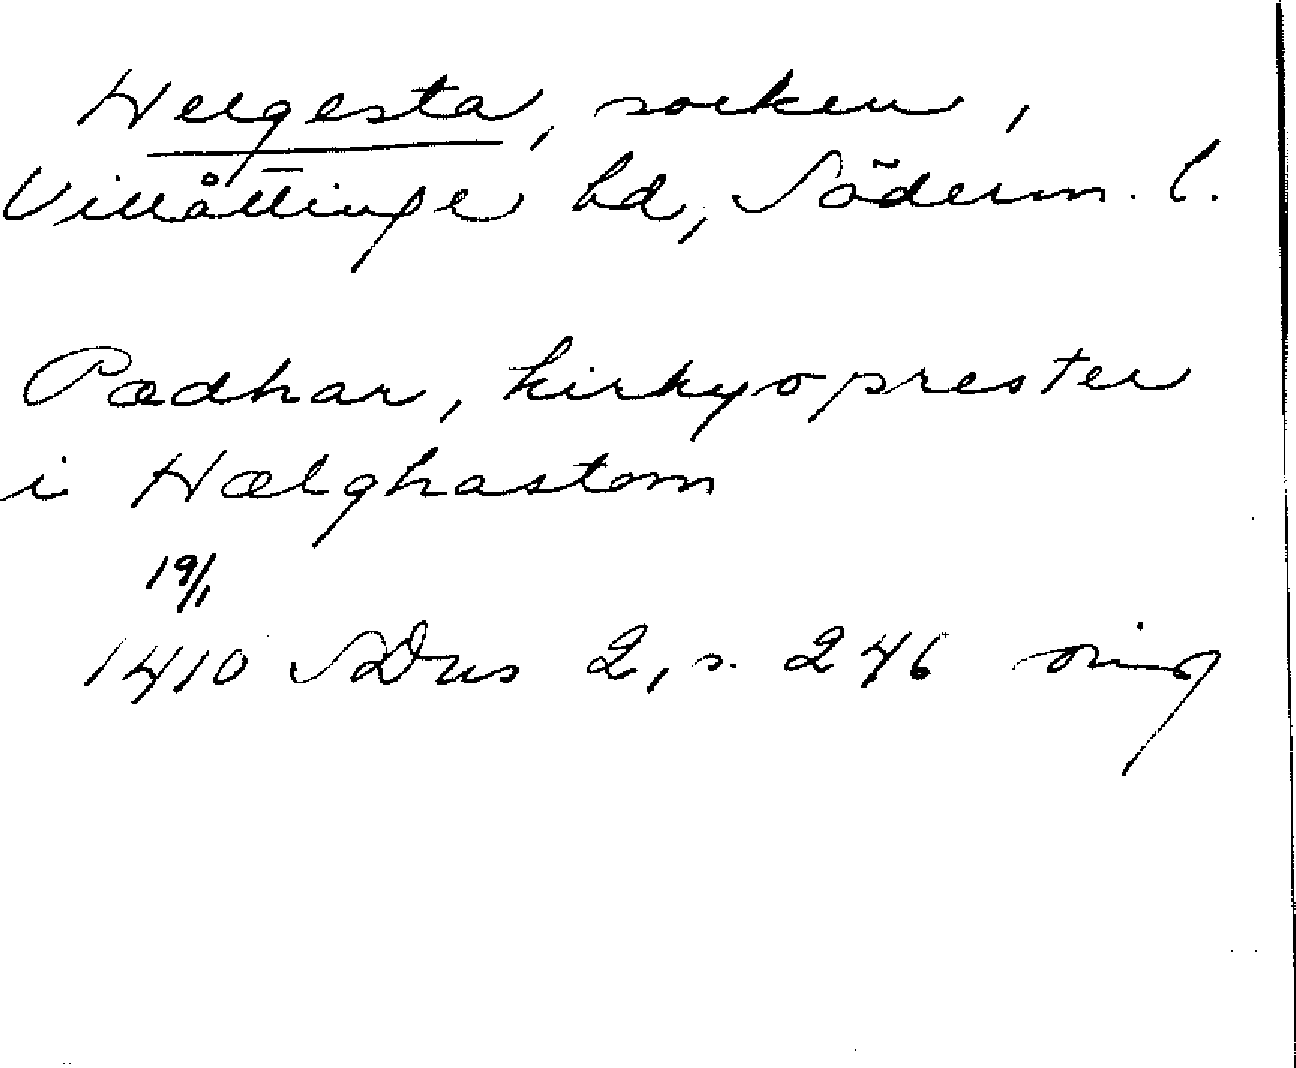 Helgesta, socken,
Villåttinge hd, Söderm. l.
Pædhar, kirkyoprester
i Hælghastom
19/1
1410 SDns 2, s. 246 orig